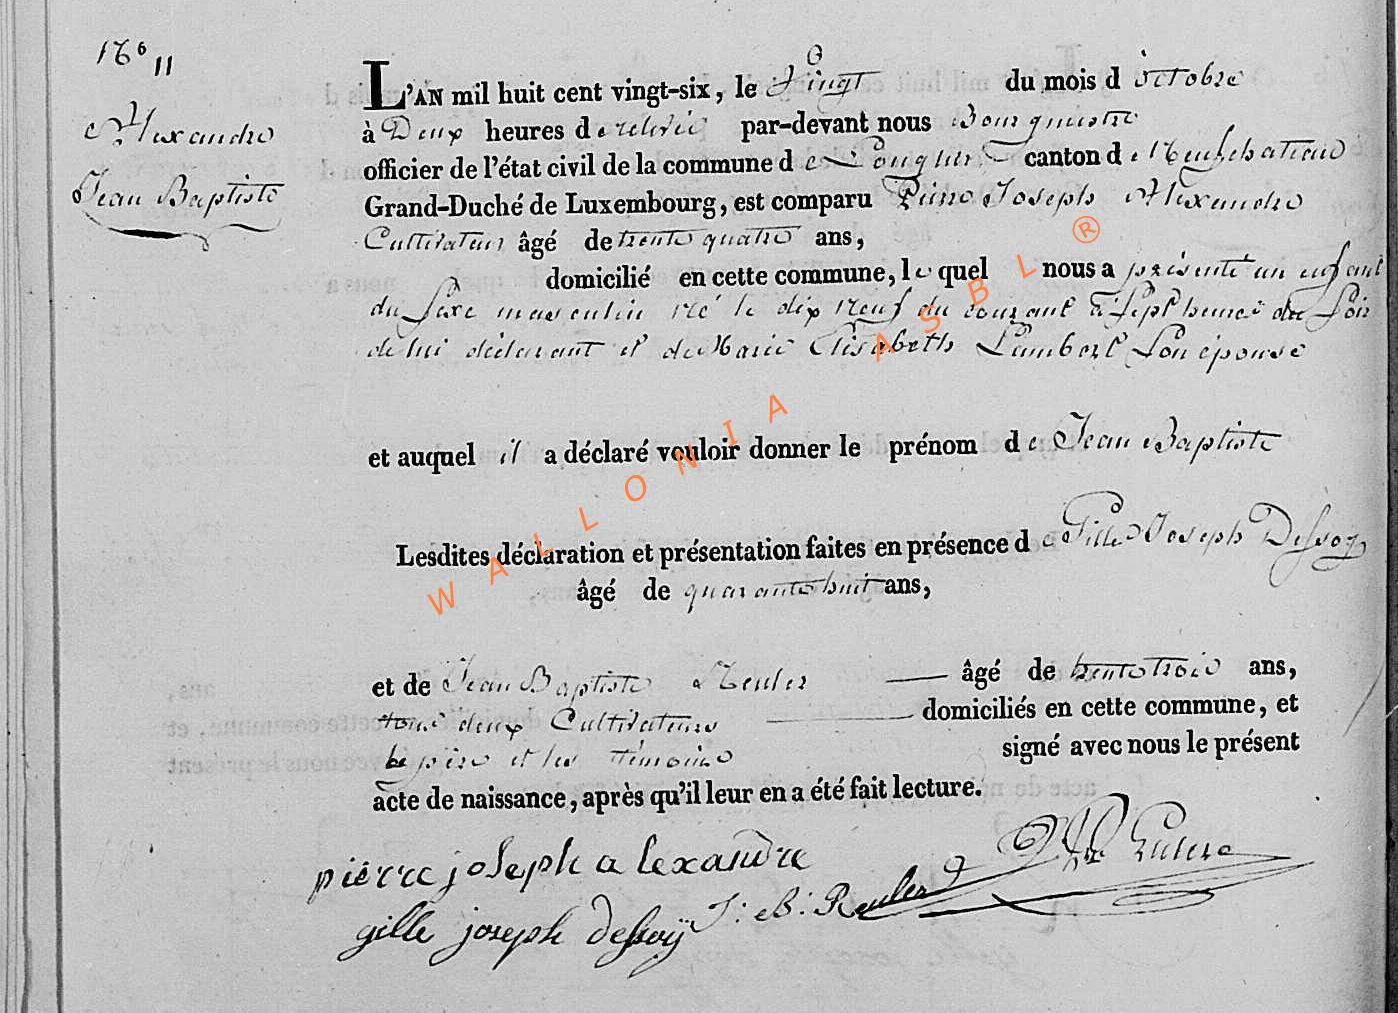 16e 11
Alexandre
Jean Baptiste
L'AN mil huit cent vingt-six, le vingt du mois d'octobre
à Deux heures de relevée par-devant nous Bourgmestre
officier de l'état civil de la commune de Longlier canton de Neufchateau
Grand-Duché de Luxembourg, est comparu Pierre Joseph Alexandre
Cultivateur âgé de trente quatre ans,
domicilié en cette commune, lequel nous a présenté un enfant
du sexe masculin né le dix neuf du courant à sept heures du soir
de lui déclarant et de Marie Elisabeth Lambert son épouse
et auquel il a déclaré vouloir donner le prénom de Jean Baptiste
Lesdites déclaration et présentation faites en présence de Gille Joseph Dessoy
âgé de quarante huit ans,
et de Jean Baptiste Reuler âgé de trente trois ans,
tous deux Cultivateurs domiciliés en cette commune, et
le père et les témoins signé avec nous le présent
acte de naissance, après qu'il leur en a été fait lecture.
pierre joseph alexandre
gille joseph dessoÿ J: B: Reuler
WALLONIA ASBL ®